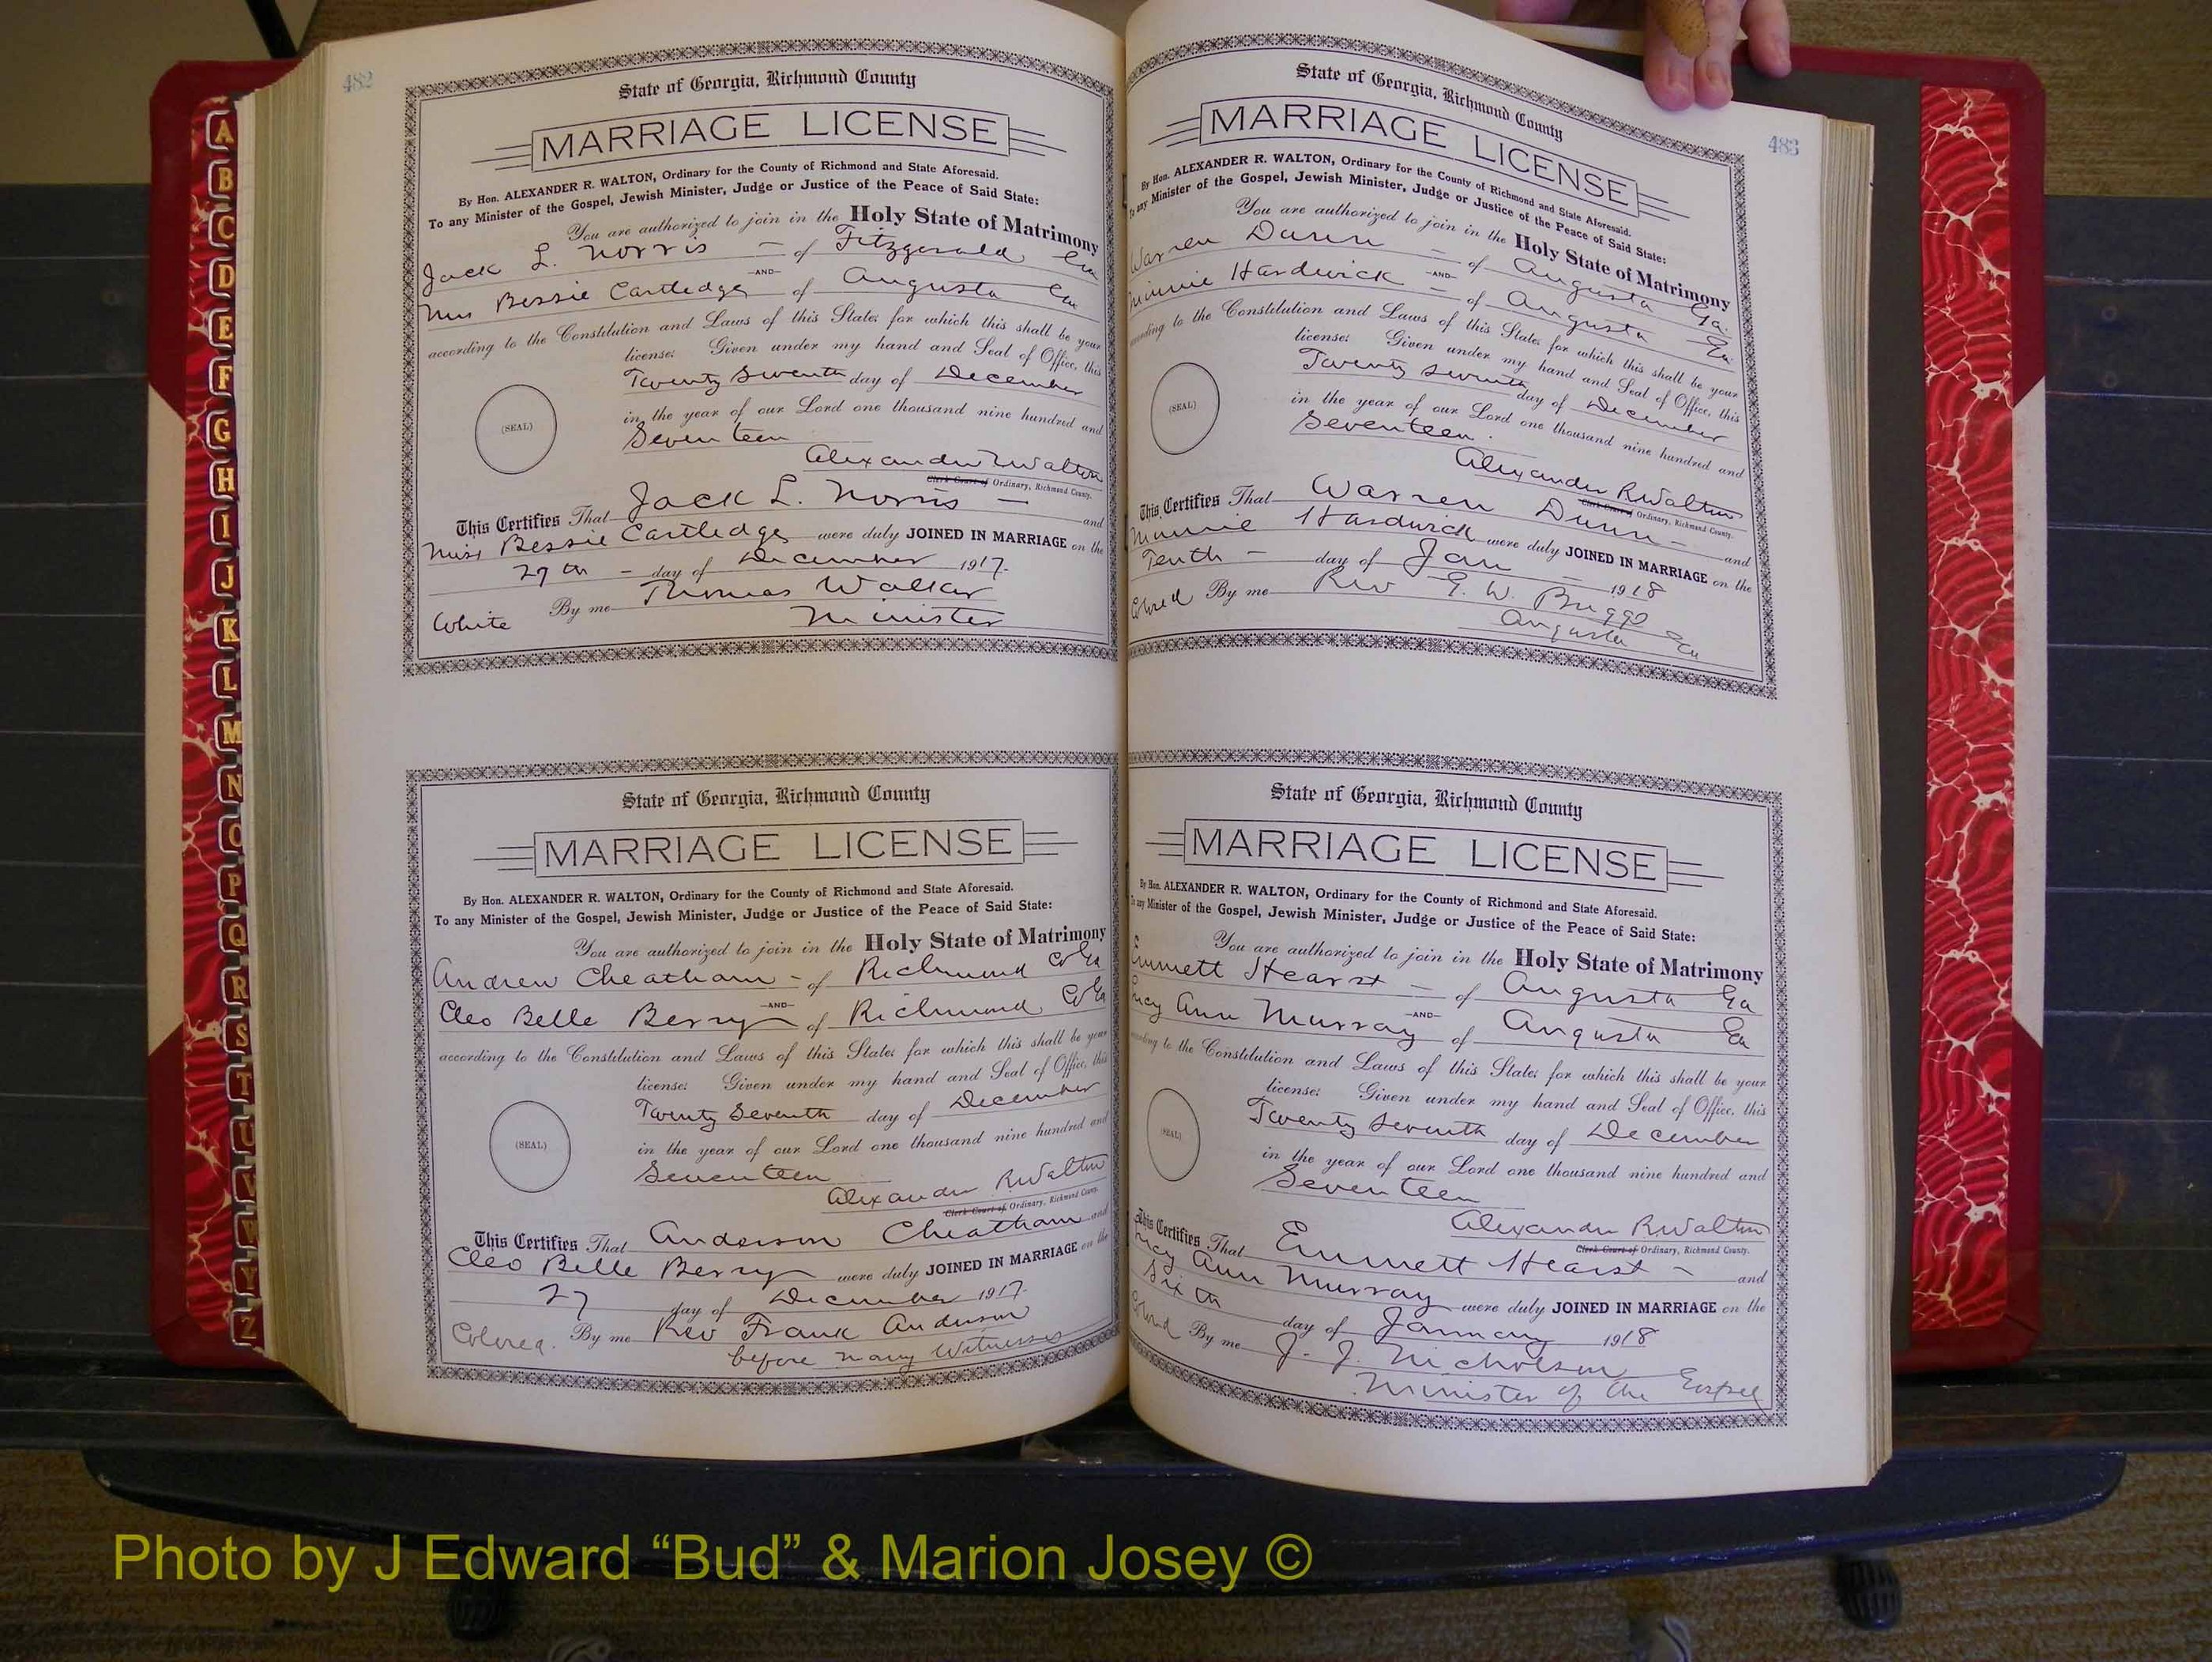 A
B
C
D
E
F
G
H
I
J
K
L
M
N
O
P
Q
R
S
T
U
V
W
Y
Z
482
State of Georgia, Richmond County
MARRIAGE LICENSE
By Hon. ALEXANDER R. WALTON, Ordinary for the County of Richmond and State Aforesaid.
To any Minister of the Gospel, Jewish Minister, Judge or Justice of the Peace of Said State:
You are authorized to join in the Holy State of Matrimony
Jack L. Norris — of Fitzgerald Ga
—AND—
Miss Bessie Cartledge of Augusta Ga
according to the Constitution and Laws of this State; for which this shall be your
license: Given under my hand and Seal of Office, this
Twenty Seventh day of December
(SEAL)
in the year of our Lord one thousand nine hundred and
Seventeen
Alexander R Walton
Clerk Court of Ordinary, Richmond County.
This Certifies That Jack L. Norris — and
Miss Bessie Cartledge were duly JOINED IN MARRIAGE on the
27th — day of December 1917.
By me Thomas Walker
White Minister
State of Georgia, Richmond County
MARRIAGE LICENSE
By Hon. ALEXANDER R. WALTON, Ordinary for the County of Richmond and State Aforesaid.
To any Minister of the Gospel, Jewish Minister, Judge or Justice of the Peace of Said State:
You are authorized to join in the Holy State of Matrimony
Andrew Cheatham - of Richmond Co Ga
—AND—
Cleo Belle Berry of Richmond Co Ga
according to the Constitution and Laws of this State; for which this shall be your
license: Given under my hand and Seal of Office, this
Twenty Seventh day of December
(SEAL)
in the year of our Lord one thousand nine hundred and
Seventeen
Alexander R Walton
Clerk Court of Ordinary, Richmond County.
This Certifies That Anderson Cheatham and
Cleo Belle Berry were duly JOINED IN MARRIAGE on the
27 day of December 1917.
Colored. By me Rev Frank Anderson
before many Witnesses
483
State of Georgia, Richmond County
MARRIAGE LICENSE
By Hon. ALEXANDER R. WALTON, Ordinary for the County of Richmond and State Aforesaid.
To any Minister of the Gospel, Jewish Minister, Judge or Justice of the Peace of Said State:
You are authorized to join in the Holy State of Matrimony
Warren Dunn — of Augusta Ga.
—AND—
Minnie Hardwick — of Augusta Ga
according to the Constitution and Laws of this State; for which this shall be your
license: Given under my hand and Seal of Office, this
Twenty Seventh day of December
(SEAL)
in the year of our Lord one thousand nine hundred and
Seventeen.
Alexander R Walton
Clerk Court of Ordinary, Richmond County.
This Certifies That Warren Dunn — and
Minnie Hardwick were duly JOINED IN MARRIAGE on the
Tenth — day of Jan — 1918
Colored By me Rev G. W. Briggs
Augusta Ga
State of Georgia, Richmond County
MARRIAGE LICENSE
By Hon. ALEXANDER R. WALTON, Ordinary for the County of Richmond and State Aforesaid.
To any Minister of the Gospel, Jewish Minister, Judge or Justice of the Peace of Said State:
You are authorized to join in the Holy State of Matrimony
Emmett Hearst — of Augusta Ga
—AND—
Lucy Ann Murray of Augusta Ga
according to the Constitution and Laws of this State; for which this shall be your
license: Given under my hand and Seal of Office, this
Twenty Seventh day of December
(SEAL)
in the year of our Lord one thousand nine hundred and
Seventeen
Alexander R Walton
Clerk Court of Ordinary, Richmond County.
This Certifies That Emmett Hearst — and
Lucy Ann Murray were duly JOINED IN MARRIAGE on the
Sixth day of January 1918
Colored By me J. J. Nicholson
Minister of the Gospel
Photo by J Edward “Bud” & Marion Josey ©